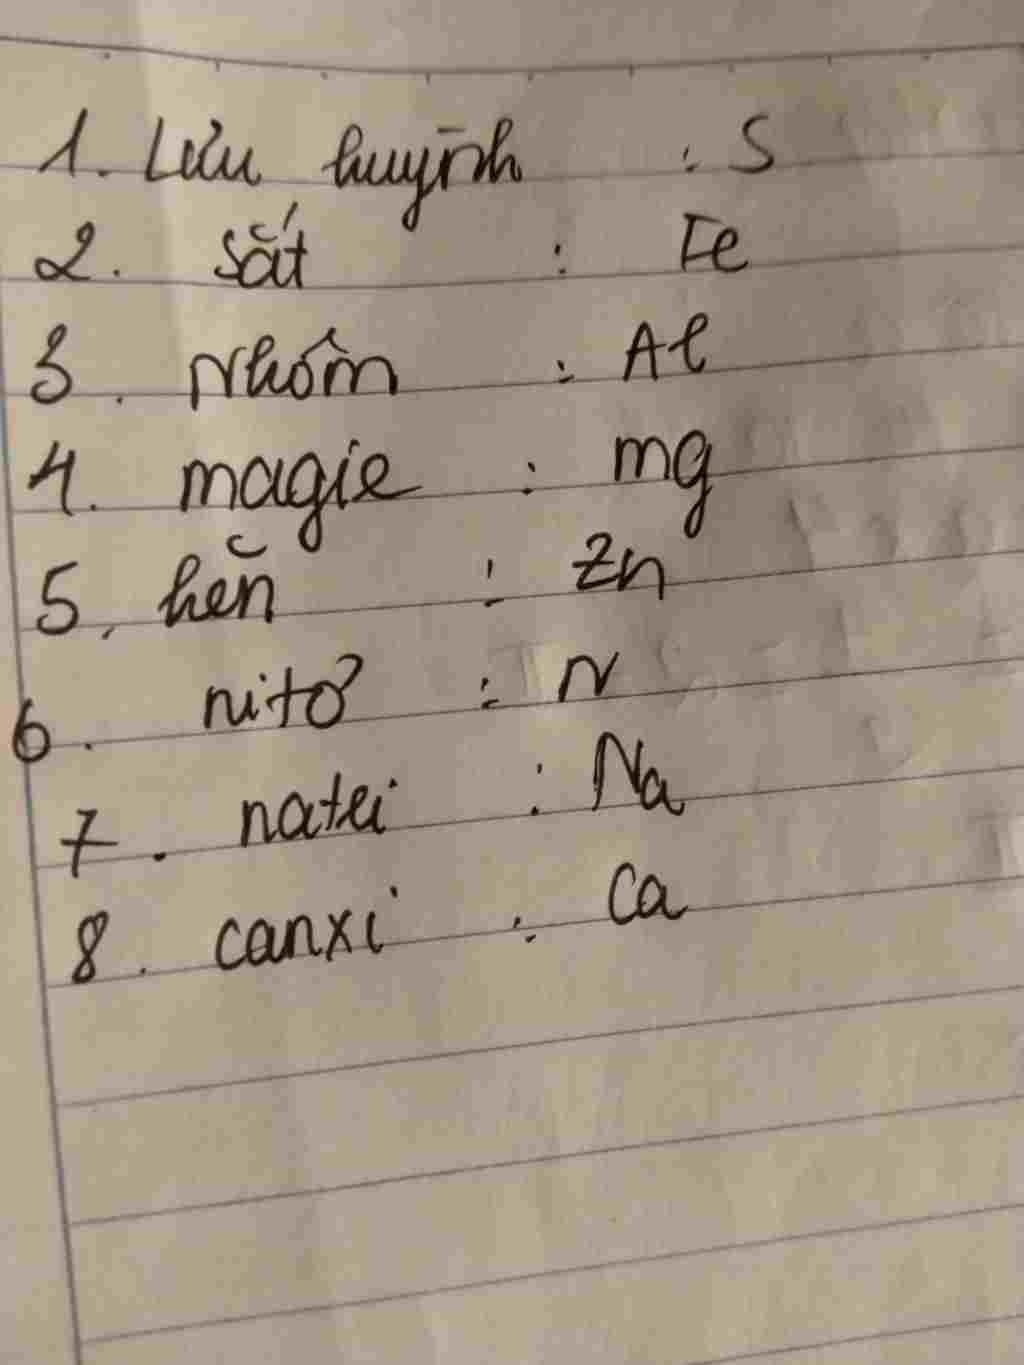 1. Lưu huỳnh : S
2. sắt : Fe
3. Nhôm : Al
4. magie : mg
5. kẽm : Zn
6. nitơ : N
7. natri : Na
8. canxi : Ca